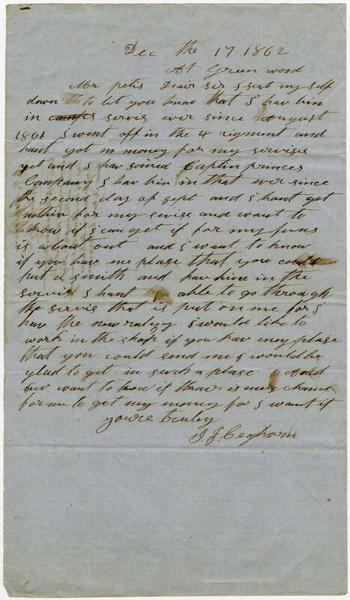 Dec the 17 1862
At Green wood
Mr petis Dear Sir I seat my self
down to let you know that I hav bin
in servis ever since August
1861 I went off in the 4 rigment and
hant got no money for my servises
yet and I hav joined Captin princes
Company I hav bin in that ever since
the second day of Sept and I hant got
nothin for my servise and want to
know if I can get it for my furs
is about out and I want to know
if you have no place that you could
put a smith and hav him in the
servis I hant able to go through
the servis that is put on me for I
hav the newralegy I would like to
work in the shop if you hav eny place
that you could send me I would be
glad to get in such a place
but want to know if thear is eny chance
for me to get my money for I want it
youre truley